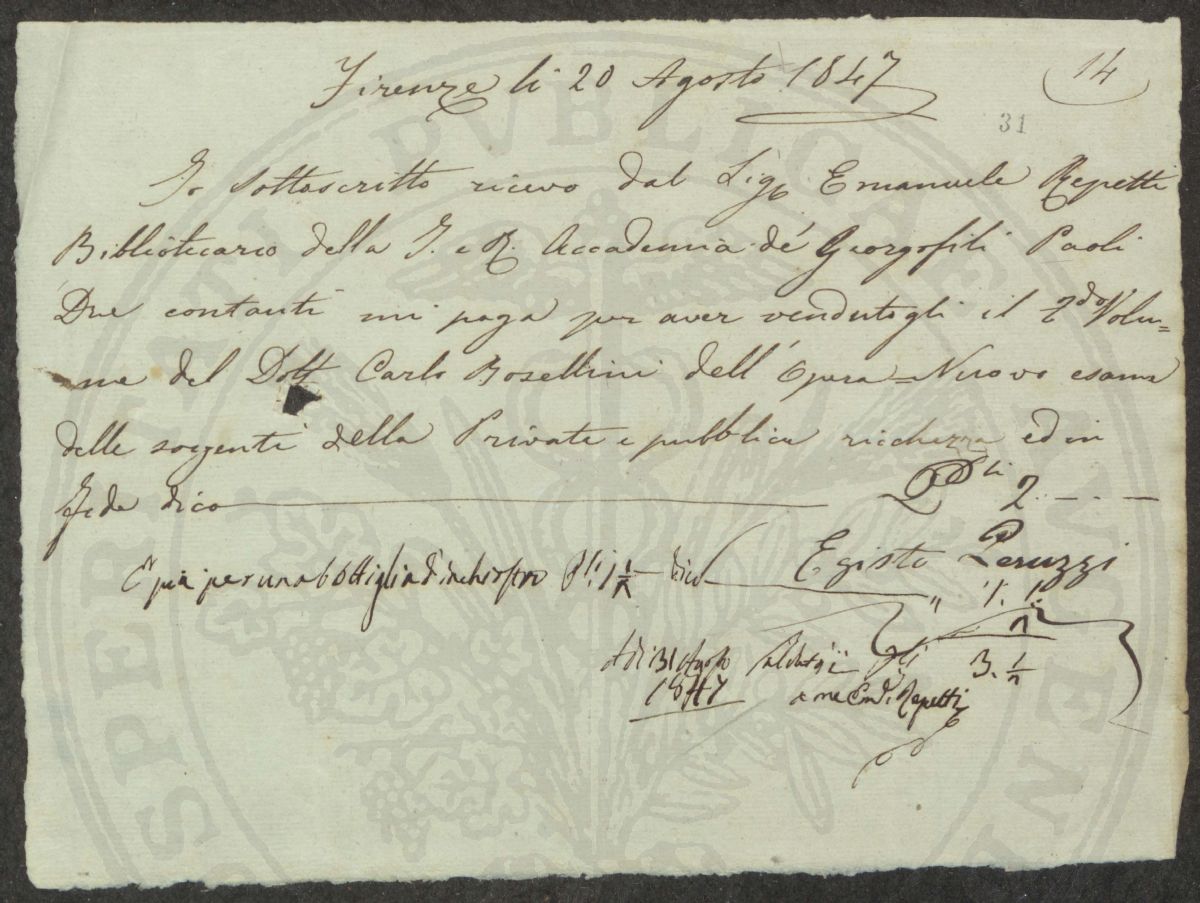 Firenze li 20 Agosto 1847
14
31
Io sottoscritto ricevo dal Sigr Emanuele Repetti
Bibliotecario della I. e R. Accademia de' Georgofili Paoli
Due contanti mi paga per aver vendutogli il 2do Volu=
me del Dott Carlo Bosellini dell' Opera = Nuovo esame
delle sorgenti della Privata e pubblica ricchezza ed in
fede dico Pli 2. — . —
Egisto Peruzzi
E più per una bottiglia d'inchiostro Pli 1 1/2 — dico " 1. 1/2
Adi 31 Agosto 3. 1/2
1847 a me Repetti
PVBLICAE
PROSPERITATI AVGENDAE